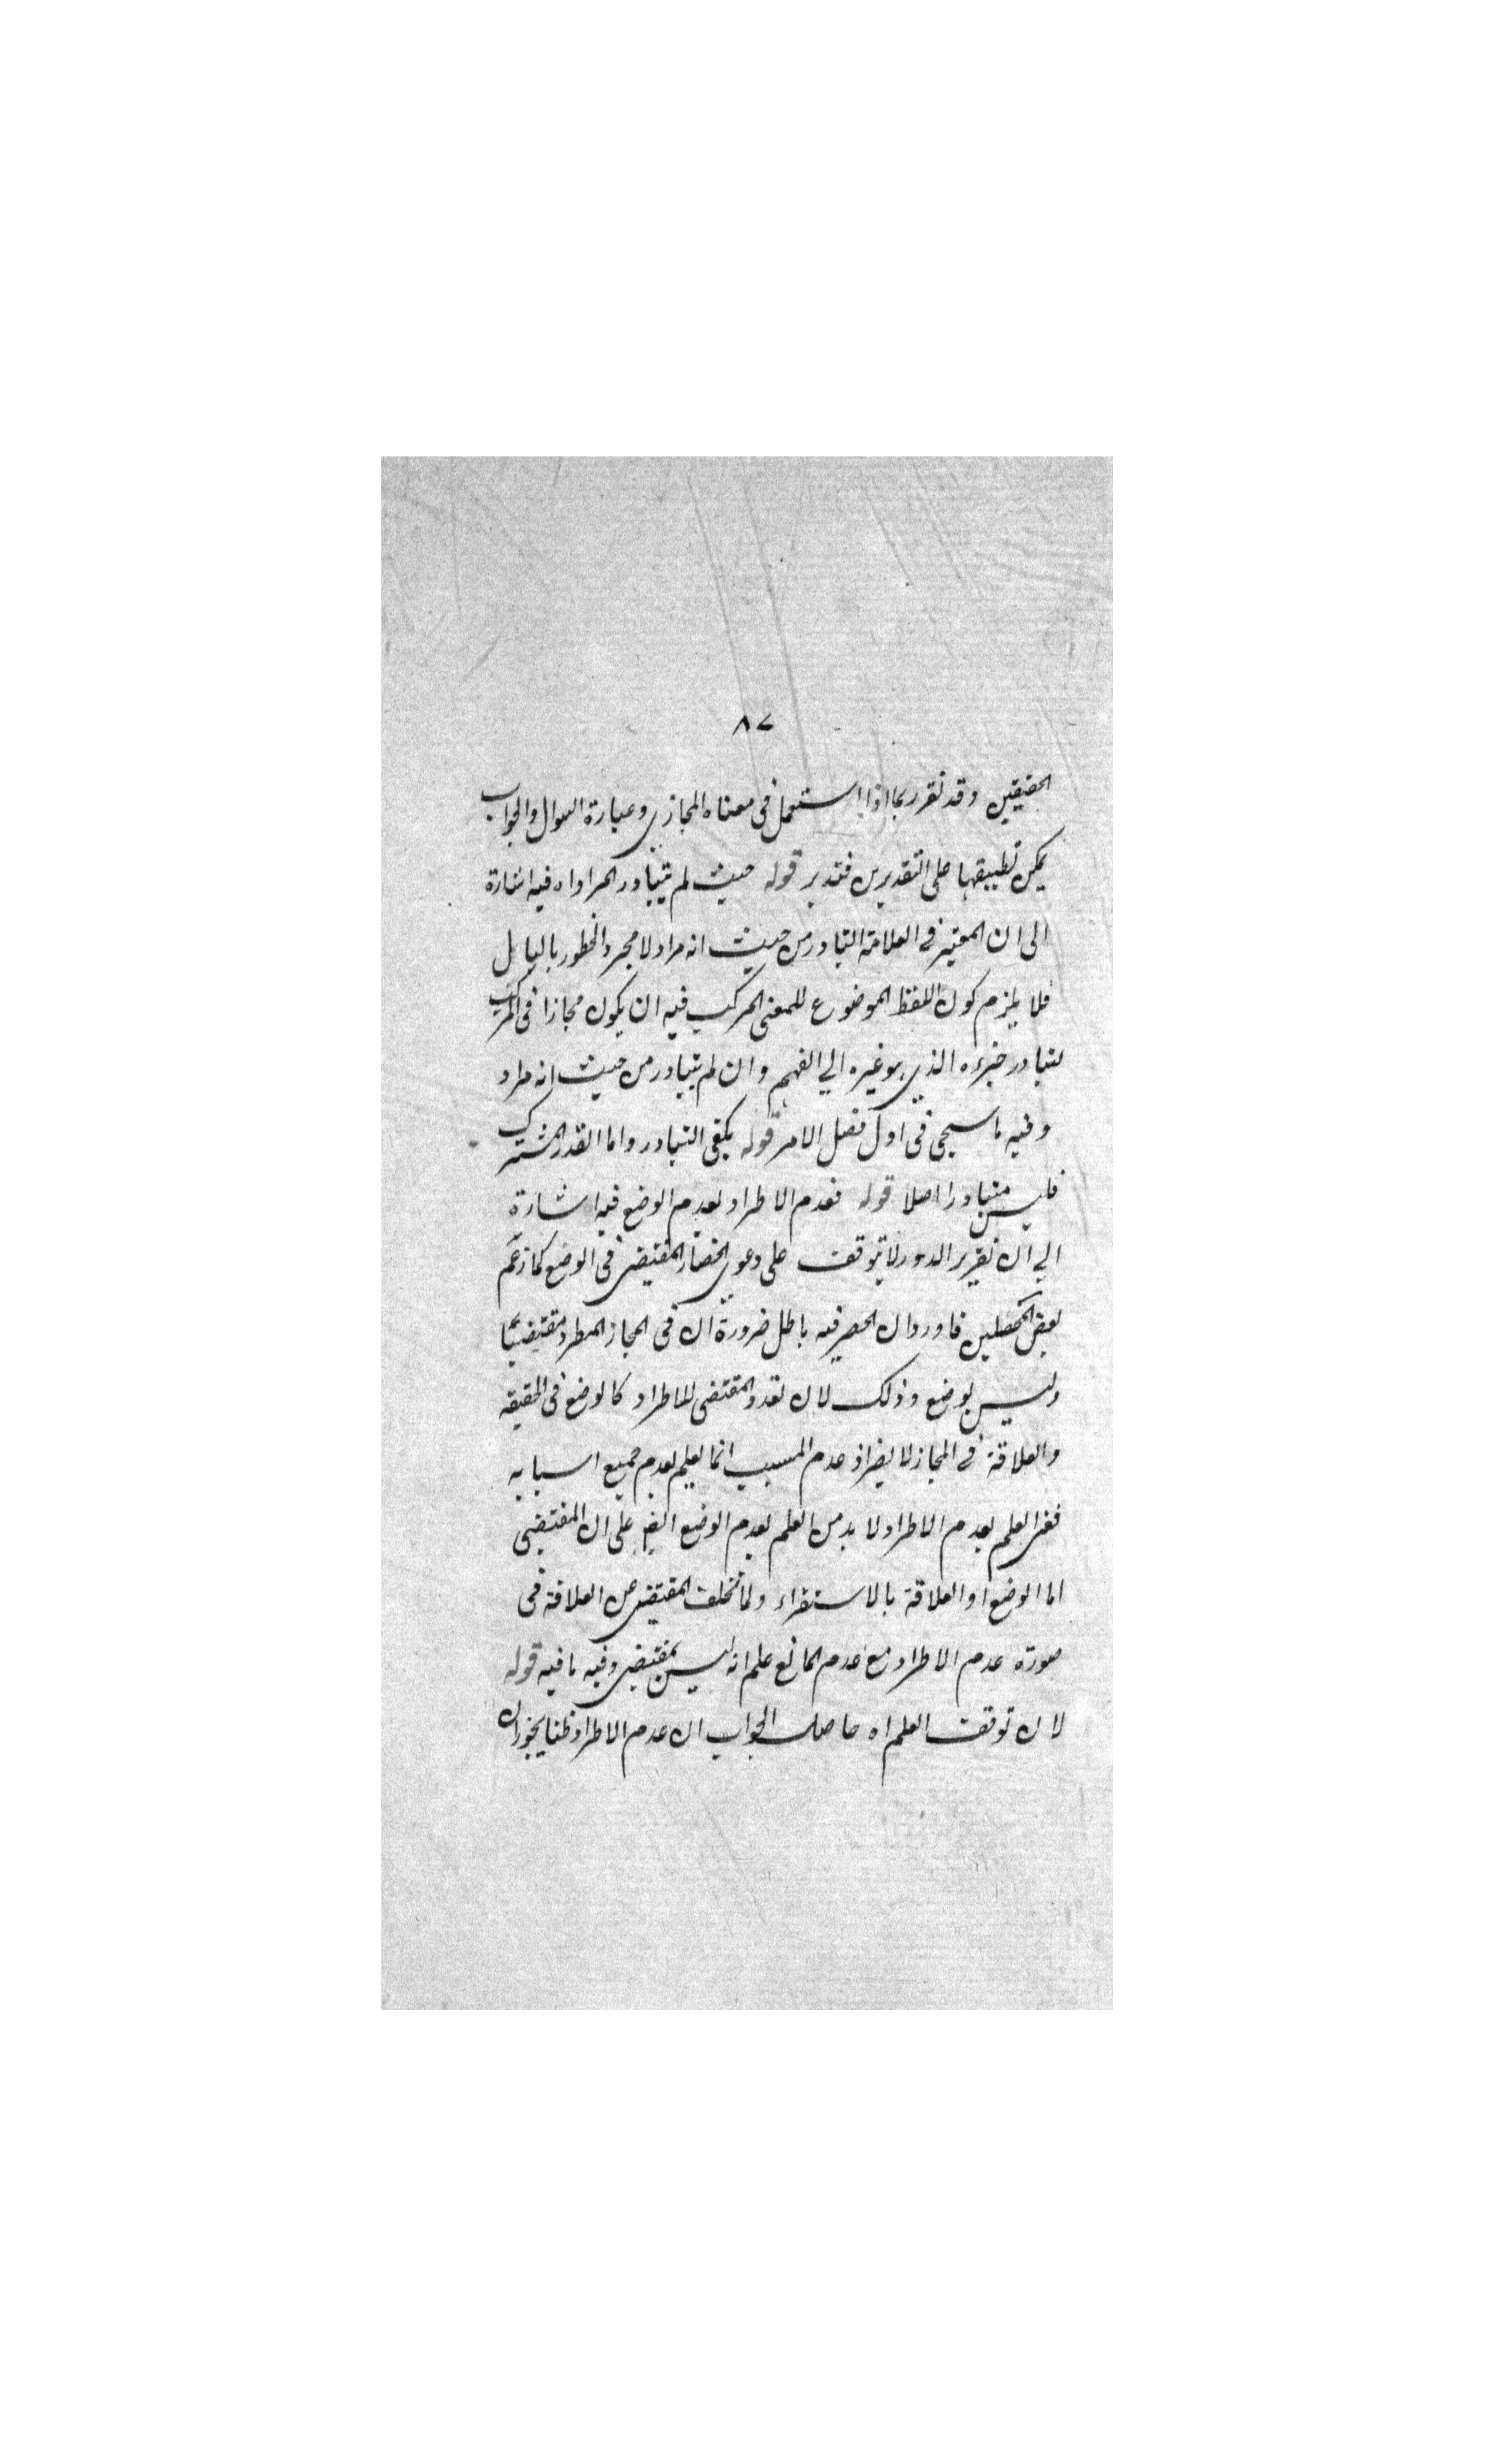 ٨٧
الحقيقين وقد تقرر بما اذا استعمل فى معناه المجازي وعبارة السوال والجواب
يمكن تطبيقها على التقديرين فتدبر قوله حيث لم يتبادر المراد اه فيه اشارة
الى ان المعتبر فى العلامة التبادر من حيث انه مراد لا مجرد الخطور بالبال
فلا يلزم كون اللفظ الموضوع للمعنى المركب فيه ان يكون مجازا فى المركب
لتبادر جزءه الذي هو غيره الي الفهم وان لم يتبادر من حيث انه مراد
وفيه ما سيجى فى اول فصل الامر قوله يكفى التبادر واما القدر المشترك
فليس متبادرا اصلا قوله فعدم الاطراد لعدم الوضع فيه اشارة
الي ان تقرير الدور لا يتوقف على دعوي انحصار المقتضى فى الوضع كما زعم
بعض المحصلين فاورد ان الحصر فيه باطل ضرورة ان فى المجاز المطرد مقتضيا
وليس بوضع وذلك لان تعدد المقتضى للاطراد كالوضع فى الحقيقه
والعلاقة فى المجاز لا يضر اذ عدم المسبب انما يعلم بعدم جميع اسبابه
ففى العلم بعدم الاطراد لا بد من العلم بعدم الوضع ايض على ان المقتضى
اما الوضع او العلاقة بالاستقراء ولما تخلف المقتضى عن العلاقة فى
صورة عدم الاطراد مع عدم المانع علم انه ليس بمقتضى وفيه ما فيه قوله
لان توقف العلم اه حاصل الجواب ان عدم الاطراد ظنا يجوز ان